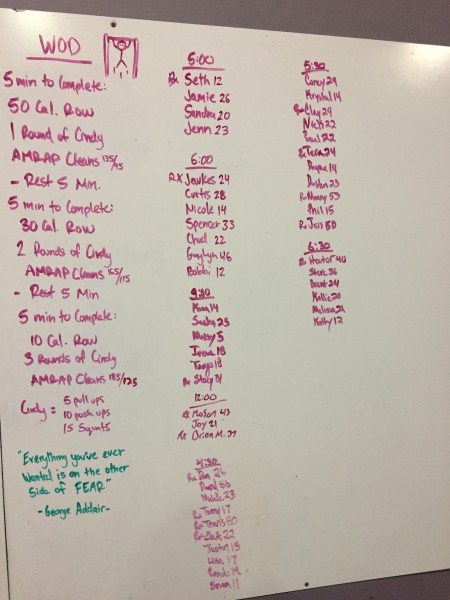 WOD
5 min to Complete:
50 Cal. Row
1 Round of Cindy
AMRAP Cleans 135/95
- Rest 5 Min.
5 min to Complete:
30 Cal. Row
2 Rounds of Cindy
AMRAP Cleans 165/115
- Rest 5 Min
5 min to Complete:
10 Cal. Row
3 Rounds of Cindy
AMRAP Cleans 185/125
Cindy = 5 pull ups
10 push ups
15 Squats
"Everything you've ever
Wanted is on the other
Side of FEAR"
- George Addair -
5:00
Rx Seth 12
Jamie 26
Sandra 20
Jenn 23
6:00
RX Jewkes 24
Curtis 28
Nicole 14
Spencer 33
Chad 22
46
Bobbi 12
9:30
14
Sasha 23
5
Irena 18
18
Rx Stacy
12:00
Rx Mason 43
Joy 21
Rx Brian M.
4:30
Rx
23
Rx Tommy 17
Rx Travis 50
Rx 22
Justin 15
Lisa 17
11
5:30
Corey 29
Krystal 14
Rx Clay 24
Nick 22
Paul 22
Rx Tera 24
14
Dustin 23
Rx 53
Phil 15
Rx 50
6:30
Rx Hector 40
Steve 36
Brent 24
Kallie 20
Melissa 24
Kathy 12